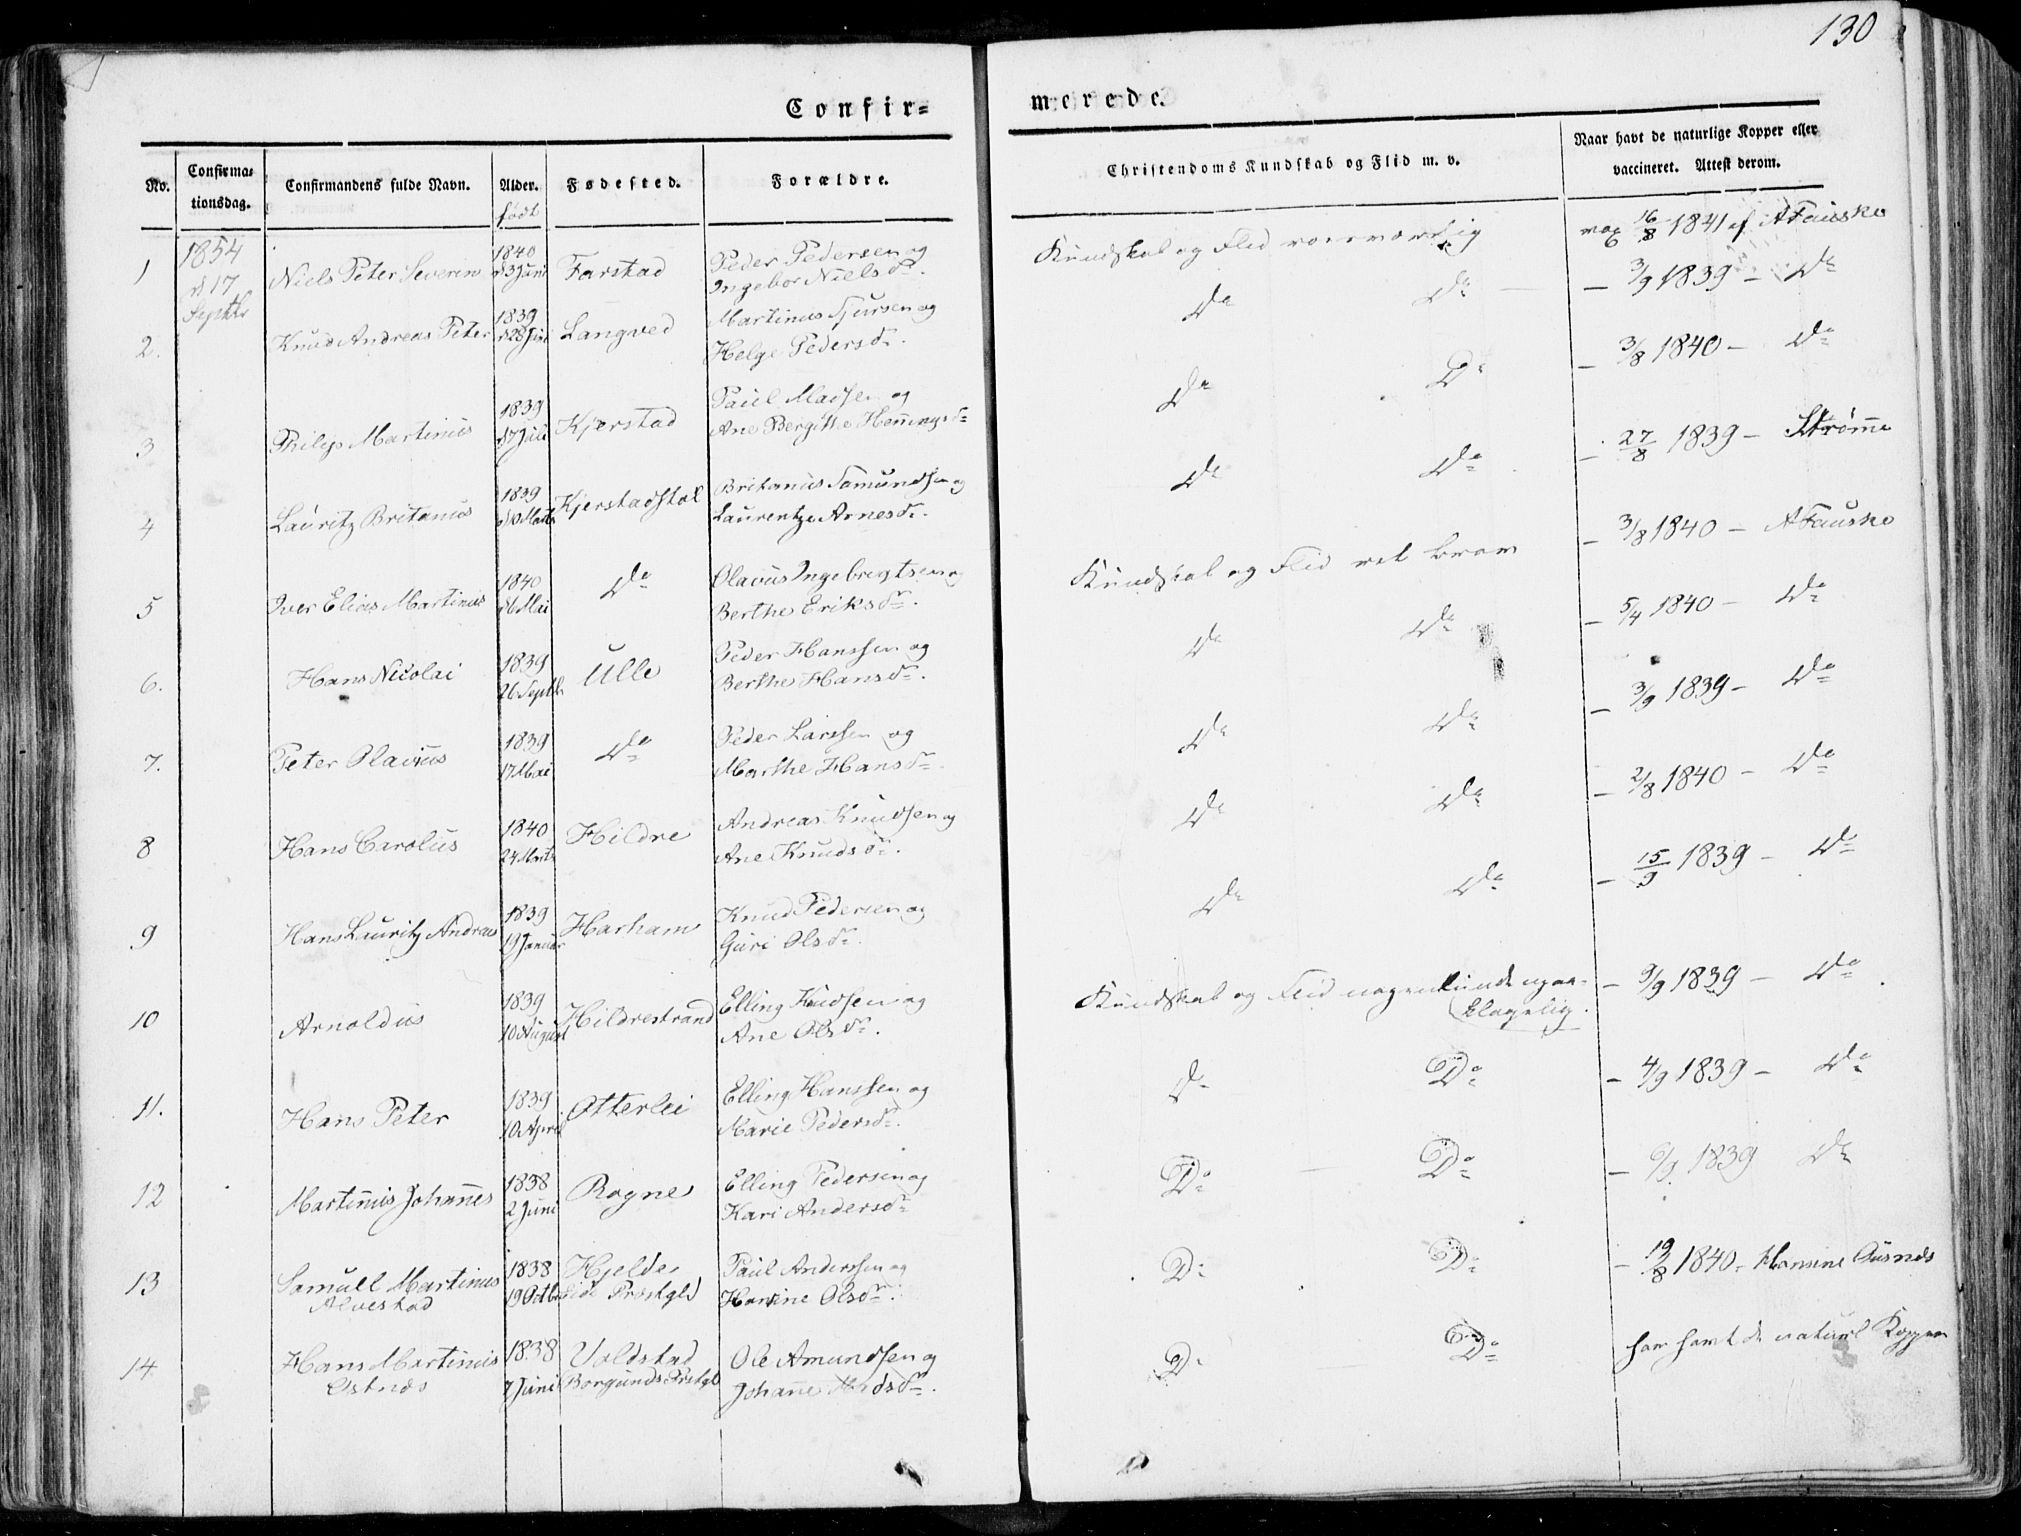 130
Confir=
merede.
No.
Confirma=
tionsdag.
Confirmandens fulde Navn.
Alder.
født
Fødested.
Forældre.
Christendoms Kundskab og Flid m. v.
Naar havt de naturlige Kopper eller
vaccineret. Attest derom.
1854
d 17
Septbr
1
Niels Peter Severin
1840
d 3 Juni
Farstad
Peder Pedersen og
Ingebor Nielsdr.
Kundskab og Flid
vax 16/8 1841 af AFauske
2.
Knud Andreas Peter
1839
d 28 Juni
Langved
Martinus Sjursen og
Helge Pedersdr.
Do Do
— 3/9 1839 — Do
3
Philip Martinus
1839
d 7 Juli
Kjerstad
Paul Madsen og
Ane Bergitte Henningsdr
Do Do
— 3/8 1840 — Do
4
Lauritz Britanus
1839
Marts
Kjerstadstøl
Britanus Samundsen og
Laurentze Arnesdr.
Do Do
— 27/8 1839 — Strømme
5
Iver Elias Martinus
1840
d 6 Mai
Do
Olavus Ingebrigtsen og
Berthe Eriksdr.
Kundskab og Flid ret brav
— 3/8 1840 — AFauske
6.
Hans Nicolai
1839
26 Septbr
Ulle
Peder Hanssen og
Berthe Hansdr.
Do Do
— 5/4 1840 — Do
7.
Peter Olavius
1839
17 Mai
Do
Peder Larssen og
Marthe Hansdr.
Do Do
— 3/9 1839 — Do
8
Hans Carolus
1840
24 Marts
Hildre
Andreas Knudsen og
Ane Knudsdr.
Do Do
— 2/8 1840 — Do
9
Hans Lauritz Andreas
1839
19 Januar
Harham
Knud Pedersen og
Guri Olsdr.
Do Do
— 15/9 1839 — Do
10
Arnoldus
1839
10 August
Hildrestrand
Elling Knudsen og
Ane Olsdr.
Kundskab og Flid nogenlunde upaa-
klagelig.
— 9/9 1839 — Do
11.
Hans Peter
1839
10 April
Otterlei
Elling Hanssen og
Marie Pedersdr.
Do Do
— 4/9 1839 — Do
12
Martinus Johannes
1838
2 Juni
Rogne
Elling Pedersen og
Kari Andersdr
Do Do
— 6/9 1839 Do
13
Samuel Martinus
Alvestad
1838
19 Octbr
Hjelde
Prstgld
Paul Anderssen og
Hansine Olsdr.
Do Do
— 19/8 1840 - Hansine Ausnes
14
Hans Martinus
Østnes
1838
7 Juni
Valdstad
Borgunds Prstgld
Ole Amundsen og
Johanne Madsdr.
Do Do
har havt de naturl Kopper